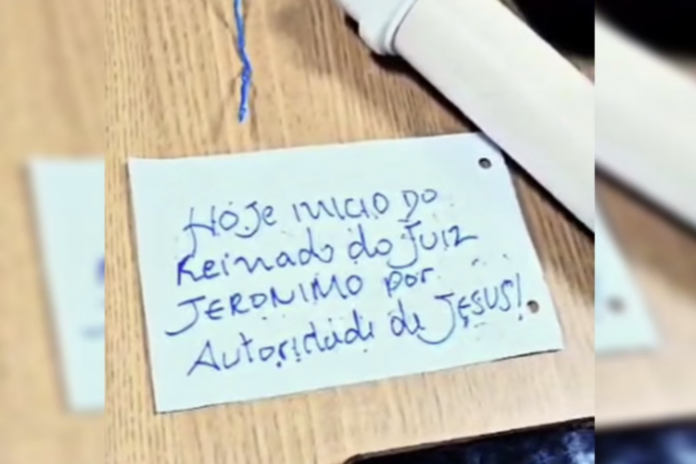 HOJE INICIO DO
Reinado do JUIZ
JERONIMO por
Autoridade de JESUS!